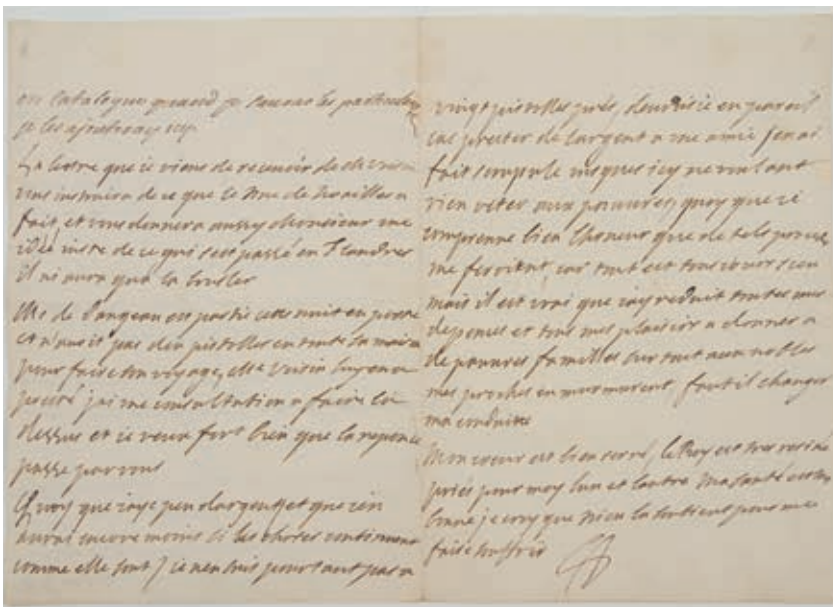 ou Catalogue quand je scauray les particuliers
je les ajousteray icy
La lettre que ie viens de recevoir de Mr Voisin
vous instruira de ce que le Duc de Noailles a
fait, et vous donnera aussy Monsieur une
idée iuste de ce qui s'est passé en Flandres
il n'i aura qua la brusler
Me de Dangeau est partie cette nuit en poste
et n'avoit pas dix pistolles en toute sa maison
pour faire son voyage, Me Voisin luy en a
presté j'ai une consultation a faire la
dessus et ie veux fort bien que la reponse
passe par vous
Quoy que iaye peu dargent et que ien
aurai encore moins si les choses continuent
comme elle sont, ie nen suis pourtant pas a
vingt pistolles près, deuvrois ie en pareil
cas prester de largent a une amie jen ai
fait scrupule iusques icy ne voulant
rien oster aux pauvres, quoy que ie
comprenne bien lhoneur que de tels
me feroient, car tout est tousiours
mais il est vrai que iay reduit toutes mes
depences et tous mes plaisirs a donner a
de pauvres familles sur tout aux nobles
mes proches en murmurent, faut il changer
ma conduitte
Mon coeur est bien serré, le Roy est tres resiné
priés pour moy lun et lautre Ma santé est
bonne je croy que Dieu la soutient pour me
faire souffrir